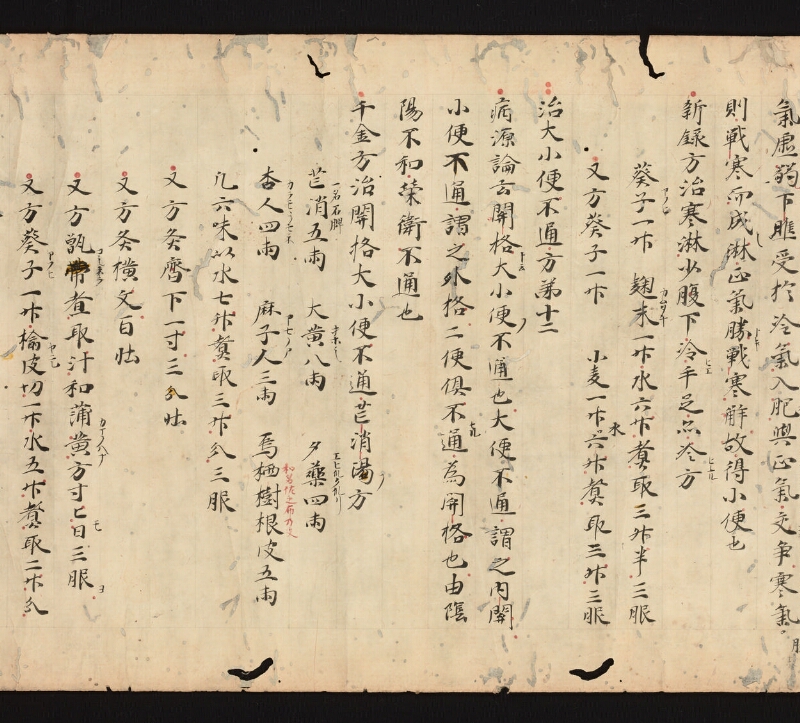 氣虛弱下雎受於冷氣入肥與正氣交争寒氣
則戰寒而成淋正氣勝戰寒解故得小便也
新錄方治寒淋少腹下冷手足亦冷方
葵子一升 麹末一升水六升煑取三升半三服
又方葵子一升 小麦一升水六升煑取三升三服
治大小便不通方第十二
病源論云開格大小便不通也大便不通謂之内開
小便不通謂之外格二便俱不通為開格也由陰
陽不和榮衛不通也
千金方治開格大小便不通芒消湯方
芒消五兩 大黄八兩 夕藥四兩
一名石脾
杏人四兩 麻子人三兩 烏栖樹根皮五兩
凡六味以水七升煑取三升分三服
又方灸齊下一寸三分壯
又方灸横文百壯
又方甑帶煑取汁和蒲黄方寸匕日三服
又方葵子一升檎皮切一升水五升煑取二升分